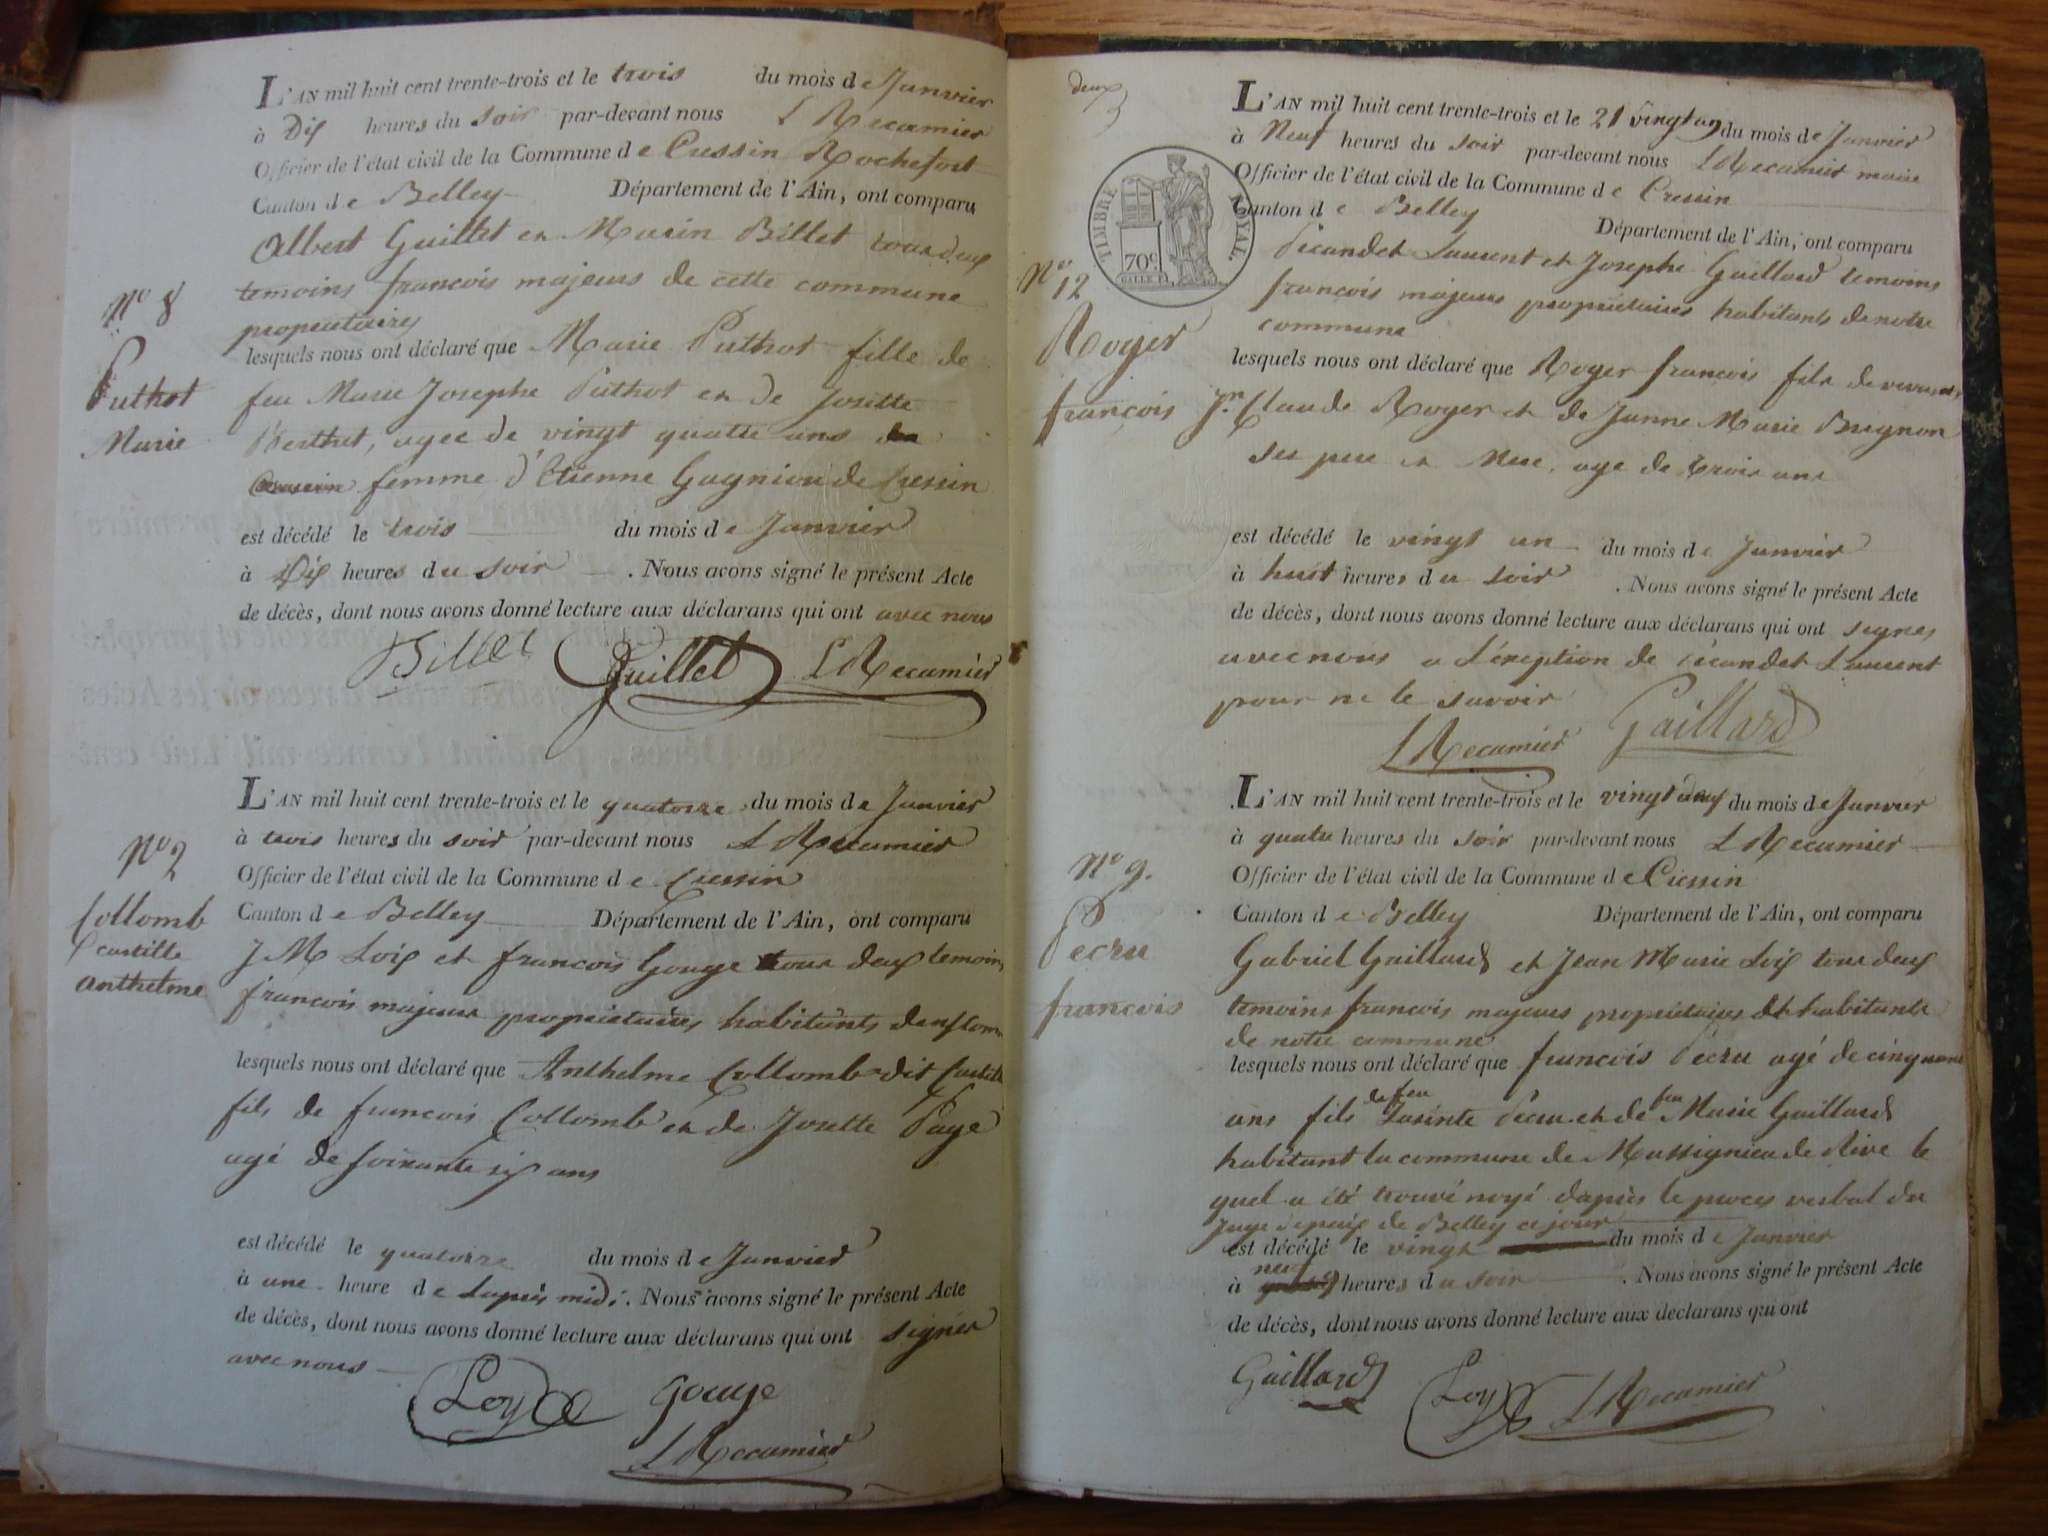 L'AN mil huit cent trente-trois et le trois du mois de Janvier
à Dix heures du soir par-devant nous L Recamier
Officier de l'état civil de la Commune de Cressin Rochefort
Canton de Belley Département de l'Ain, ont comparu
Albert Guillet et Marin Billet tous deux
temoins francois majeurs de cette commune
propriétaires
lesquels nous ont déclaré que Marie Puthot fille de
feu Marie Josephe Puthot et de Josette
Berthet, agée de vingt quatre ans
femme d'Etienne Gagnion de Cressin
est décédé le trois du mois de Janvier
à Dix heures du soir. Nous avons signé le présent Acte
de décès, dont nous avons donné lecture aux déclarans qui ont avec nous
Billet Guillet L Recamier
No 8
Puthot
Marie
L'AN mil huit cent trente-trois et le quatorze du mois de Janvier
à trois heures du soir par-devant nous L Recamier
Officier de l'état civil de la Commune de Cressin
Canton de Belley Département de l'Ain, ont comparu
J M Loix et francois Gouge tous deux temoins
francois majeurs propriétaires habitants
lesquels nous ont déclaré que Anthelme Collomb dit Castille
fils de francois Collomb et de Josette Page
agé de soixante six ans
est décédé le quatorze du mois de Janvier
à une heure de lapres midi. Nous avons signé le présent Acte
de décès, dont nous avons donné lecture aux déclarans qui ont signés
avec nous
Loy Gouge
L Recamier
No 2
Collomb
Castille
Anthelme
deux
TIMBRE ROYAL.
70c
L'AN mil huit cent trente-trois et le 21 vingt un du mois de Janvier
à Neuf heures du soir par-devant nous L Recamier maire
Officier de l'état civil de la Commune de Cressin
Canton de Belley Département de l'Ain, ont comparu
Laurent et Josephe Gaillard temoins
francois majeurs propriétaires habitants de notre
commune
lesquels nous ont déclaré que Royer francois fils de
Jn. Claude Royer et de Janne Marie Brignon
ses pere et Mere, age de trois ans
est décédé le vingt un du mois de Janvier
à huit heures du soir. Nous avons signé le présent Acte
de décès, dont nous avons donné lecture aux déclarans qui ont signés
avec nous a l'exeption de Laurent
pour ne le savoir
L Recamier Gaillard
No 12
Royer
francois
L'AN mil huit cent trente-trois et le vingt neuf du mois de Janvier
à quatre heures du soir par-devant nous L Recamier
Officier de l'état civil de la Commune de Cressin
Canton de Belley Département de l'Ain, ont comparu
Gabriel Gaillard et Jean Marie Loix tous deux
temoins francois majeurs propriétaires et habitants
de notre commune
lesquels nous ont déclaré que francois Pecru agé de cinquante
ans fils de feu Jasinte Pecru et de feu Marie Gaillard
habitant la commune de Massignieu de Rive le
quel a été trouvé noyé dapres le proces verbal du
Juge de paix de Belley ce jour
est décédé le vingt du mois de Janvier
neuf
à heures du soir. Nous avons signé le présent Acte
de décès, dont nous avons donné lecture aux déclarans qui ont
Gaillard Loy L Recamier
No 9.
Pecru
francois